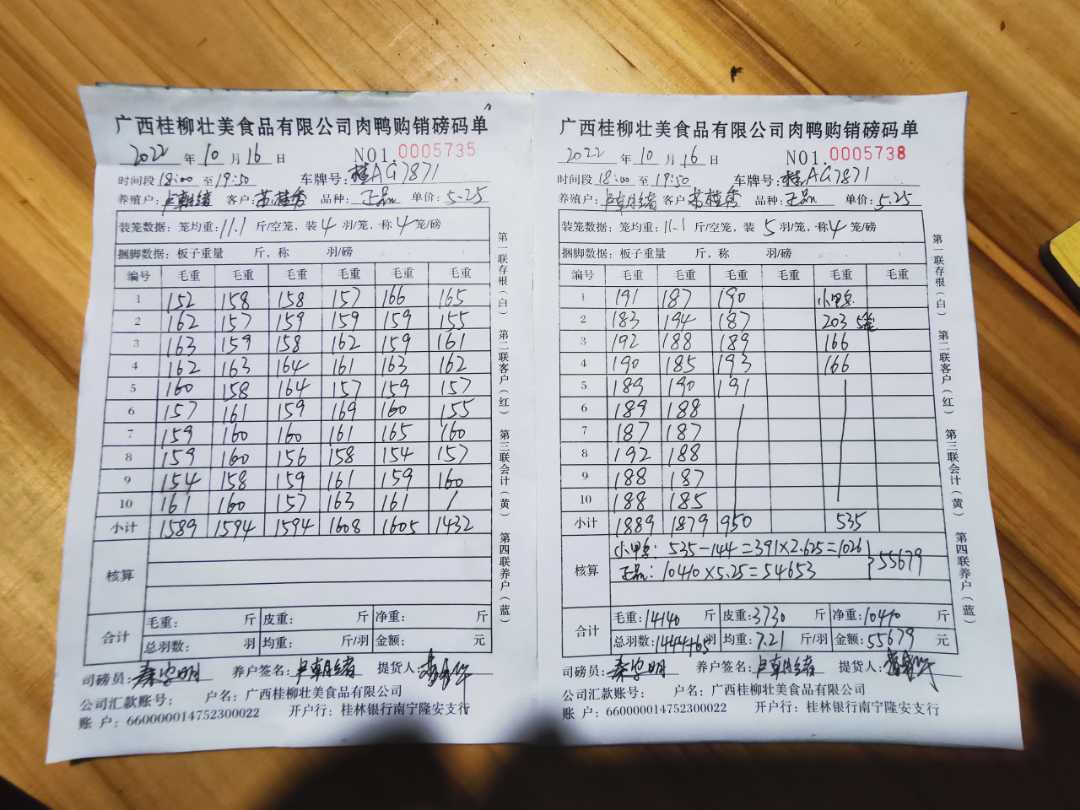 广西桂柳壮美食品有限公司肉鸭购销磅码单
2022 年 10 月 16 日 NO1.0005735
时间段 18:00 至 19:50 车牌号: 桂AG7871
养殖户: 客户: 苏桂秀 品种: 正品 单价: 5.25
装笼数据: 笼均重: 11.1 斤/空笼, 装 4 羽/笼, 称 4 笼/磅
捆脚数据: 板子重量 斤, 称 羽/磅
编号 毛重 毛重 毛重 毛重 毛重 毛重
1 152 158 158 157 166 165
2 162 157 159 159 159 155
3 163 159 158 162 159 161
4 162 163 164 161 163 162
5 160 158 164 157 159 157
6 157 161 159 169 160 155
7 159 160 160 161 165 160
8 159 160 156 158 154 157
9 154 158 159 161 159 160
10 161 160 157 163 161 /
小计 1589 1594 1594 1608 1605 1432
核算
合计 毛重: 斤 皮重: 斤 净重: 斤
总羽数: 羽 均重: 斤/羽 金额: 元
司磅员: 养户签名: 提货人:
公司汇款账号: 户名: 广西桂柳壮美食品有限公司
账 户: 660000014752300022 开户行: 桂林银行南宁隆安支行
第一联存根(白) 第二联客户(红) 第三联会计(黄) 第四联养户(蓝)
广西桂柳壮美食品有限公司肉鸭购销磅码单
2022 年 10 月 16 日 NO1.0005738
时间段 18:00 至 19:50 车牌号: 桂AG7871
养殖户: 客户: 苏桂秀 品种: 正品 单价: 5.25
装笼数据: 笼均重: 11.1 斤/空笼, 装 5 羽/笼, 称 4 笼/磅
捆脚数据: 板子重量 斤, 称 羽/磅
编号 毛重 毛重 毛重 毛重 毛重 毛重
1 191 187 190 小甲
2 183 194 187 203 5笼
3 192 188 189 166
4 190 185 193 166
5 189 190 191
6 189 188
7 187 187
8 192 188
9 188 187
10 188 185
小计 1889 1879 950 535
核算 小甲: 535-144=391×2.625=1026
正品: 10410×5.25=54653 }55679
合计 毛重: 14140 斤 皮重: 3730 斤 净重: 10410 斤
总羽数: 羽 均重: 7.21 斤/羽 金额: 55679 元
司磅员: 养户签名: 提货人:
公司汇款账号: 户名: 广西桂柳壮美食品有限公司
账 户: 660000014752300022 开户行: 桂林银行南宁隆安支行
第一联存根(白) 第二联客户(红) 第三联会计(黄) 第四联养户(蓝)